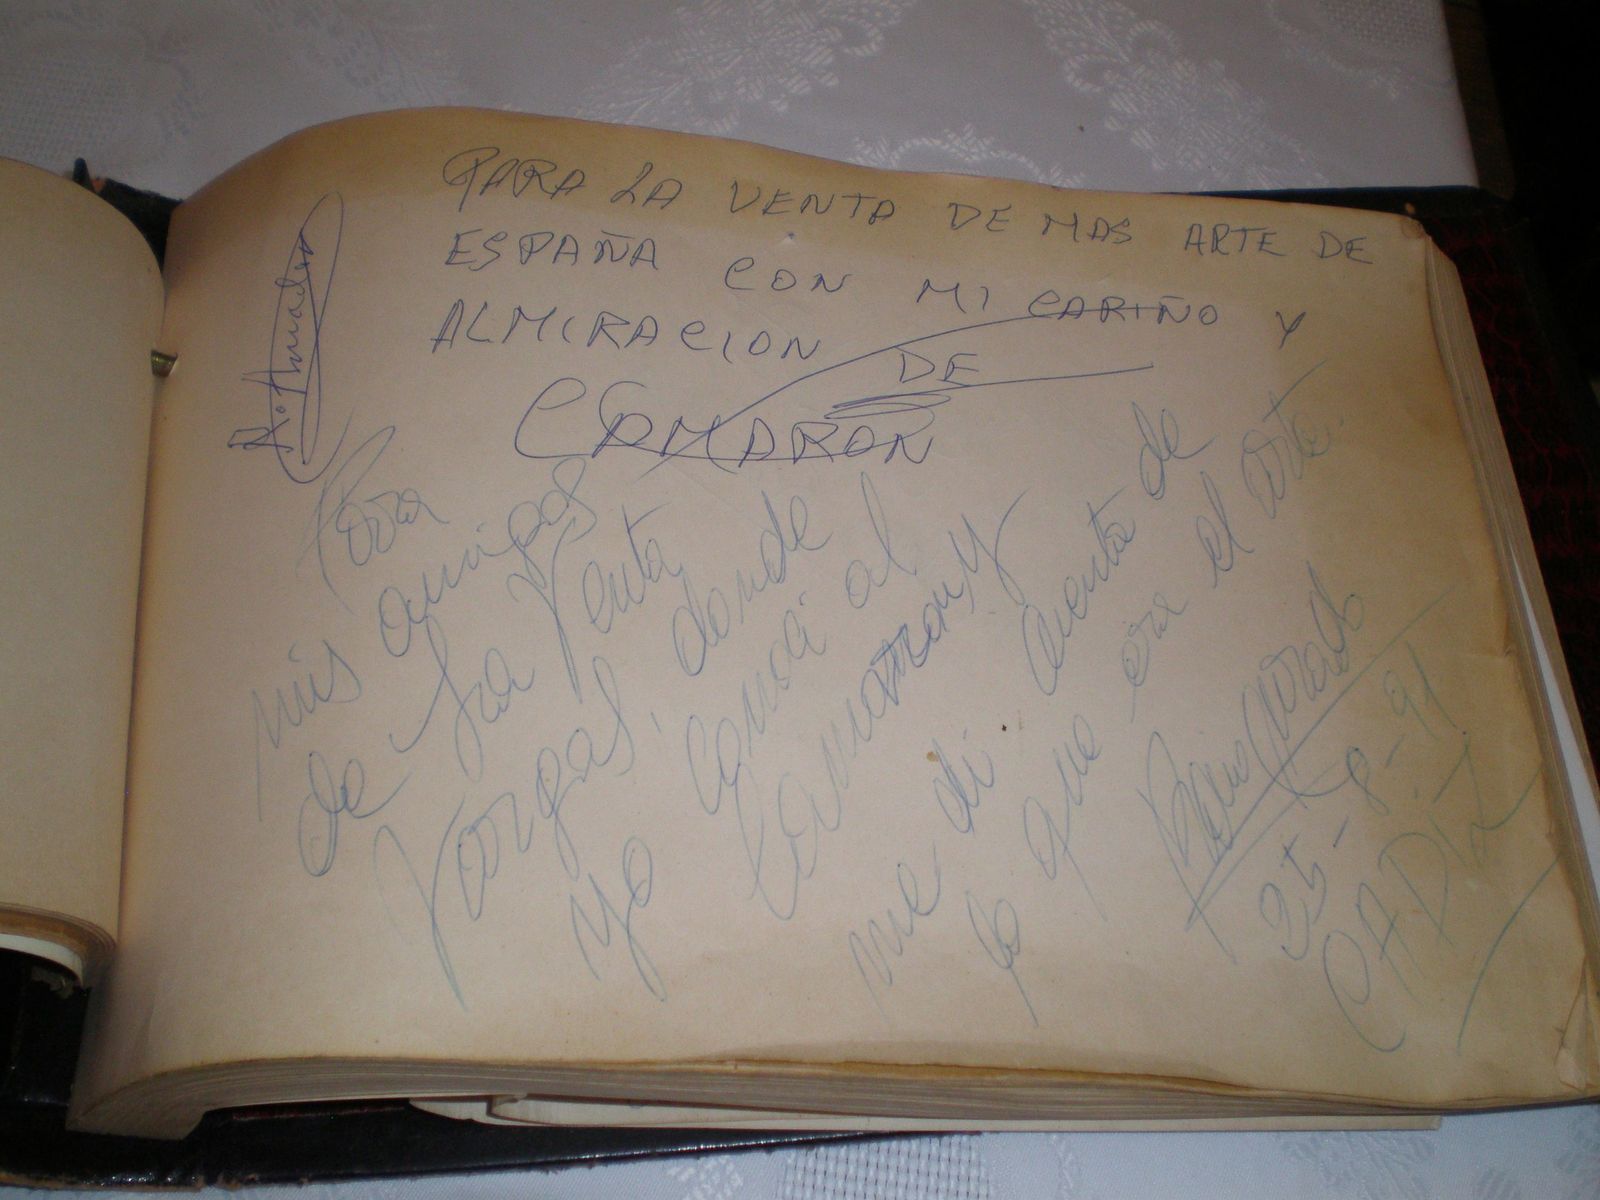 PARA LA VENTA DE MAS ARTE DE
ESPAÑA CON MI CARIÑO Y
ALMIRACION DE
CAMARON
Para
mis amigos
de La Venta
Vargas, donde
yo conocí al
Camaron, y
me di cuenta de
lo que era el arte.
25-8-91
CADIZ